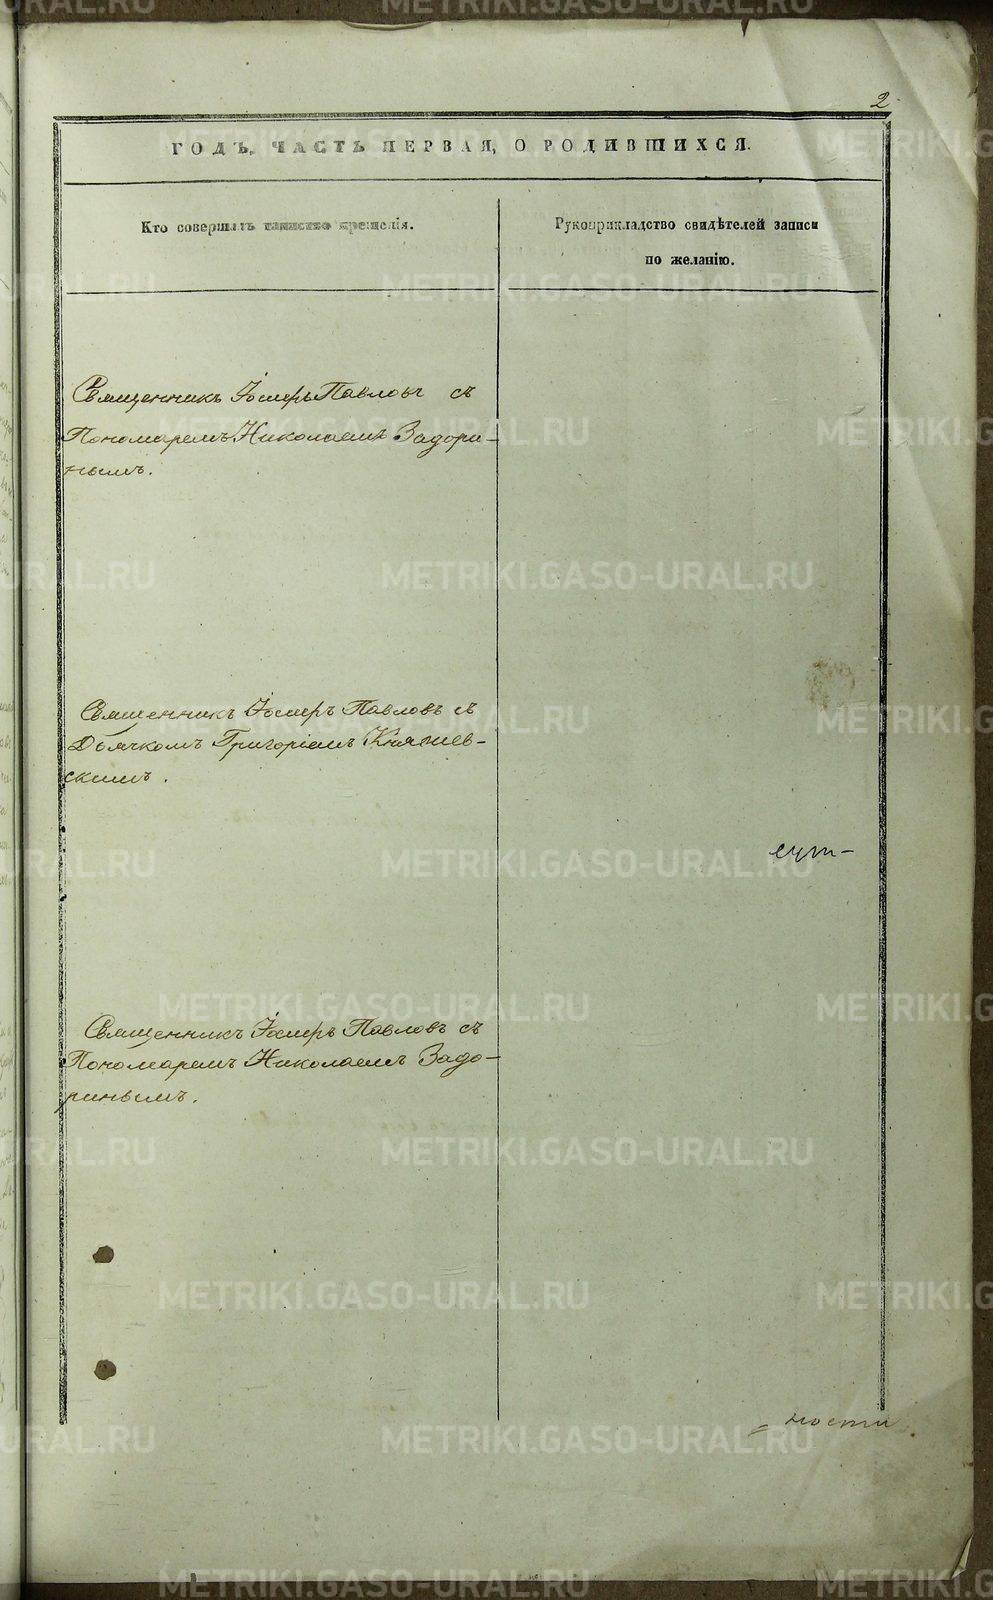 METRIKI.GASO-URAL.RU
2.
ГОДЪ, ЧАСТЬ ПЕРВАЯ, О РОДИВШИХСЯ.
Кто совершалъ таинство крещенія.
Рукоприкладство свидѣтелей записи
по желанію.
Священникъ Іосифъ Павловъ съ
Пономаремъ Николаемъ Задори-
нымъ.
Священникъ Іосифъ Павловъ съ
Дьячкомъ Григоріемъ Княжев-
скимъ.
Священникъ Іосифъ Павловъ съ
Пономаремъ Николаемъ Задо-
ринымъ.
= ности